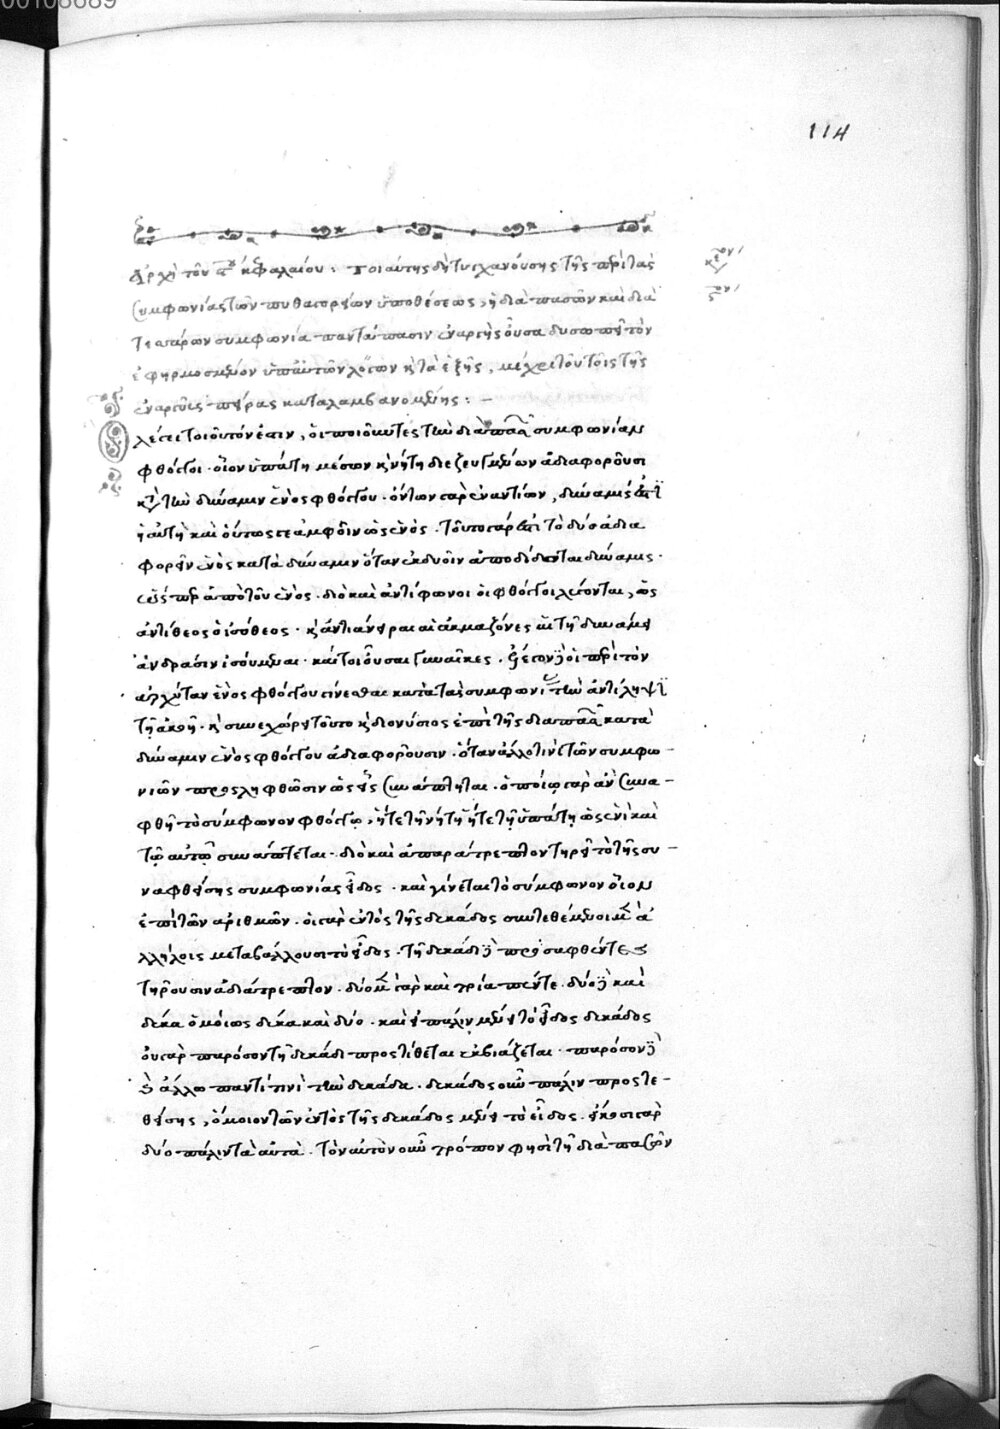 00108689
114
Ἀρχὴ τοῦ κεφαλαίου: τοιαύτης δὴ τυγχανούσης τῆς περὶ τὰς
συμφωνίας τῶν πυθαγορείων ὑποθέσεως, ἡ διὰ πασῶν καὶ διὰ
τεσσάρων συμφωνία παντάπασιν ἐναργὴς οὖσα δυσωπεῖ τὸν
ἐφηρμοσμένον ὑπ' αὐτῶν λόγον κ τὰ ἑξῆς, μέχρι τοῦ τοῖς τῆς
ἐναργείας πείρας καταλαμβανομένης: –
λέγει τοιοῦτόν ἐστιν, οἱ ποιοῦντες τὴν διὰ πασῶν συμφωνίαν
φθόγγοι· οἷον ὑπάτη μέσων κ νήτη διεζευγμένων ἀδιαφοροῦσι
κτ τὴν δύναμιν ἑνὸς φθόγγου· ὄντων γὰρ ἐναντίων, δύναμίς ἐστι
ἡ αὐτὴ καὶ οὕτως γε ἀμφοῖν ὡς ἑνός· τοῦτο γάρ ἐστι τὸ δύο ἀδια
φορεῖν ἑνὸς κατὰ δύναμιν ὅταν ἐκ δυοῖν ἀποδίδοται δύναμις·
ὥσπερ ἀπὸ τοῦ ἑνός· διὸ καὶ ἀντίφωνοι οἱ φθόγγοι λέγονται, ὡς
ἀντίθεος ὁ ἰσόθεος· κ ἀντιάνειραι αἱ ἀμαζόνες αἳ τῇ δυνάμει
ἀνδράσιν ἰσούμεναι· καίτοι οὖσαι γυναῖκες. ἔλεγον δὲ οἱ περὶ τὸν
ἀρχύταν ἑνὸς φθόγγου γίνεσθαι κατὰ τὰς συμφωνίας τὴν ἀντίληψι
τῇ ἀκοῇ· κ συνεχώρει τοῦτο κ διονύσιος ἐπὶ τῆς διὰ πασῶν κατὰ
δύναμιν ἑνὸς φθόγγου ἀδιαφοροῦσιν· ὅταν ἄλλο τινὶ τῶν συμφω–
νιῶν προσληφθῶσιν ὡς εἷς συνάπτηται· ὁποίῳ γὰρ ἂν συνα–
φθῇ τὸ σύμφωνον φθόγγῳ, ἤτε τῇ νήτῃ ἤτε τῇ ὑπάτῃ ὡς ἑνὶ καὶ
τῷ αὐτῷ συνάπτεται· διὸ καὶ ἀπαράτρεπτον τηρεῖ τὸ τῆς συ–
ναφθείσης συμφωνίας εἶδος· καὶ γίνεται τὸ σύμφωνον οἷον
ἐπὶ τῶν ἀριθμῶν· οἱ γὰρ ἐντὸς τῆς δεκάδος συντεθέμενοι μὲν ἀ
λλήλοις μεταβάλλουσι τὸ εἶδος· τῇ δεκάδι δὲ προσαφθέντες
τηροῦσιν ἀδιάτρεπτον· δύο μὲν γὰρ καὶ τρία πέντε· δύο δὲ καὶ
δέκα ὁμοίως δέκα καὶ δύο· καὶ εἰ πάλιν μένει τὸ εἶδος δεκάδος
οὐ γὰρ παρόσον τῇ δεκάδι προστίθεται ἐκβιάζεται· παρόσον δὲ
ἄλλω παντί τινι τὴν δεκάδα· δεκάδος οὖν πάλιν προστε–
θείσης, ὅμοιον τῶν ἐντὸς τῆς δεκάδος μένει τὸ εἶδος· εἴκοσι γὰρ
δύο πάλιν τὰ αὐτά. τὸν αὐτὸν οὖν τρόπον φησὶ τῇ διὰ πασῶν